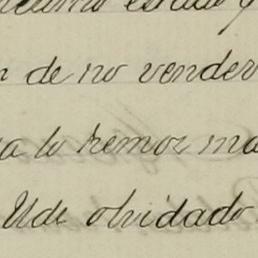 estado y
de no vender
lo hemos ma
Udc olvidado